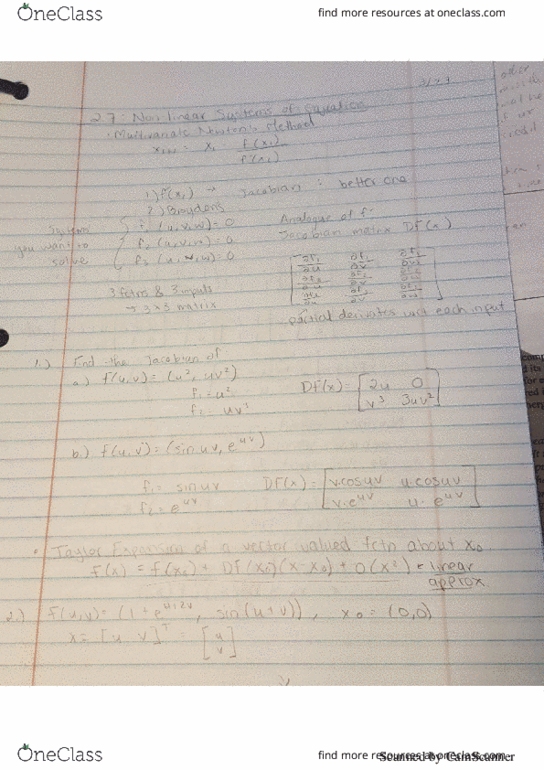 OneClass
find more resources at oneclass.com
3/27
2.7: Non linear Systems of Equation
· Multivariate Newton's Method
1) f(x,) → Jacobian : better one
System
you want to
solve
f₁ (u,v,w) = 0
f₂ (u,v,w) = 0
f₃ (u,v,w) = 0
Analogue of f'
Jacobian matrix DF(x)
3 fctns & 3 inputs
→ 3×3 matrix
partial derivates each input
1.) Find the Jacobian of
a.) f(u,v) = (u², uv³)
f₁ = u²
f₂ = uv³
DF(x) = [2u 0
v³ 3uv²]
b.) f(u,v) = (sin uv, e^uv)
f₁ = sin uv
f₂ = e^uv
DF(x) = [v·cosuv u·cosuv
v·e^uv u·e^uv]
• Taylor Expansion of a vector valued fctn about x₀
f(x) = f(x₀) + DF(x₀)(x-x₀) + O(x²) linear
approx.
2.) f(u,v) = (1+e^u+2v, sin(u+v)), x₀ = (0,0)
x = [u v]ᵀ = [u
v]
OneClass
find more resources at oneclass.com
Scanned by CamScanner